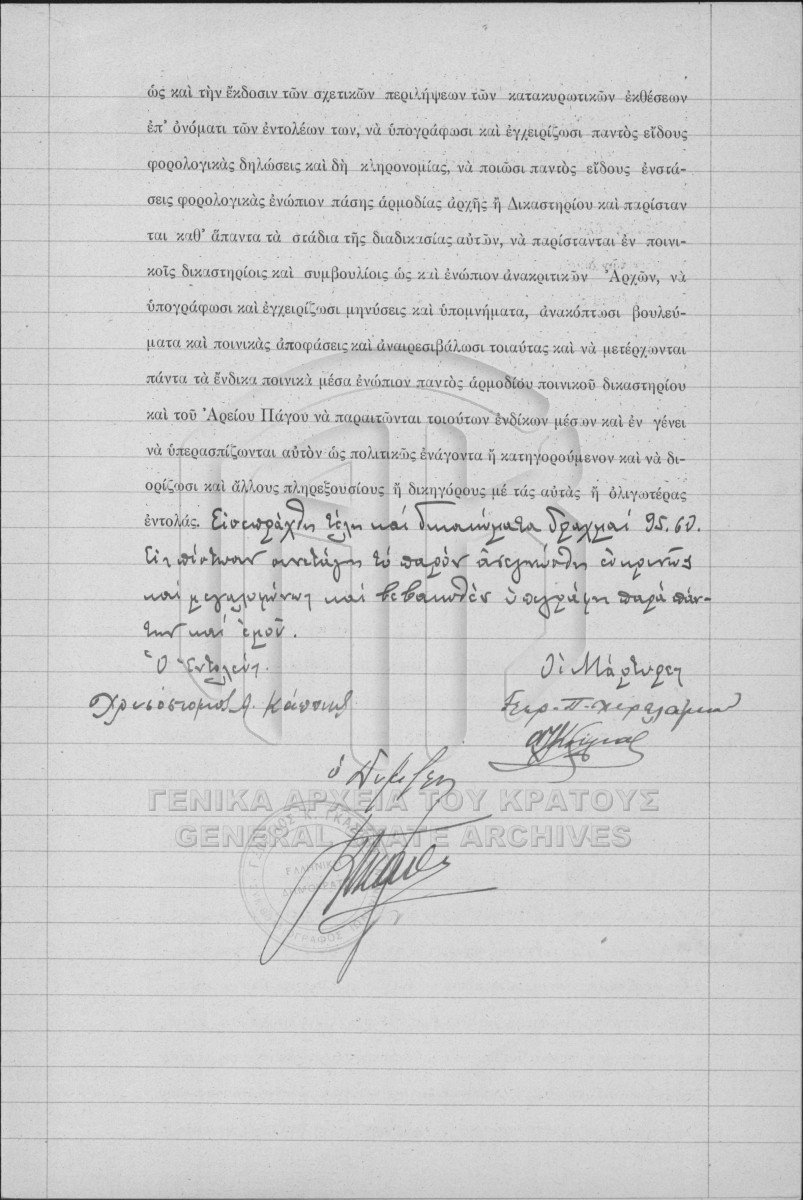 ὡς καὶ τὴν ἔκδοσιν τῶν σχετικῶν περιλήψεων τῶν κατακυρωτικῶν ἐκθέσεων
ἐπ' ὀνόματι τῶν ἐντολέων των, νὰ ὑπογράφωσι καὶ ἐγχειρίζωσι παντὸς εἴδους
φορολογικὰς δηλώσεις καὶ δὴ κληρονομίας, νὰ ποιῶσι παντὸς εἴδους ἐνστά-
σεις φορολογικὰς ἐνώπιον πάσης ἁρμοδίας ἀρχῆς ἢ Δικαστηρίου καὶ παρίσταν
ται καθ' ἅπαντα τὰ στάδια τῆς διαδικασίας αὐτῶν, νὰ παρίστανται ἐν ποινι-
κοῖς δικαστηρίοις καὶ συμβουλίοις ὡς καὶ ἐνώπιον ἀνακριτικῶν Ἀρχῶν, νὰ
ὑπογράφωσι καὶ ἐγχειρίζωσι μηνύσεις καὶ ὑπομνήματα, ἀνακόπτωσι βουλεύ-
ματα καὶ ποινικὰς ἀποφάσεις καὶ ἀναιρεσιβάλωσι τοιαύτας καὶ νὰ μετέρχωνται
πάντα τὰ ἔνδικα ποινικὰ μέσα ἐνώπιον παντὸς ἁρμοδίου ποινικοῦ δικαστηρίου
καὶ τοῦ Ἀρείου Πάγου νὰ παραιτῶνται τοιούτων ἐνδίκων μέσων καὶ ἐν γένει
νὰ ὑπερασπίζωνται αὐτὸν ὡς πολιτικῶς ἐνάγοντα ἢ κατηγορούμενον καὶ νὰ δι-
ορίζωσι καὶ ἄλλους πληρεξουσίους ἢ δικηγόρους μὲ τάς αὐτὰς ἢ ὀλιγωτέρας
ἐντολάς. Εἰσεπράχθη τέλη καὶ δικαιώματα δραχμαί 95.60.
Εἰς πίστωσιν συνετάγη τὸ παρόν ἀνεγνώσθη εὐκρινῶς
καὶ μεγαλοφώνως καὶ βεβαιωθὲν ὑπεγράφη παρὰ πάν-
των καὶ ἐμοῦ.
Ὁ Ἐντολεύς
Οἱ Μάρτυρες
Χρυσόστομος Α.
ΓΕΝΙΚΑ ΑΡΧΕΙΑ ΤΟΥ ΚΡΑΤΟΥΣ
GENERAL STATE ARCHIVES